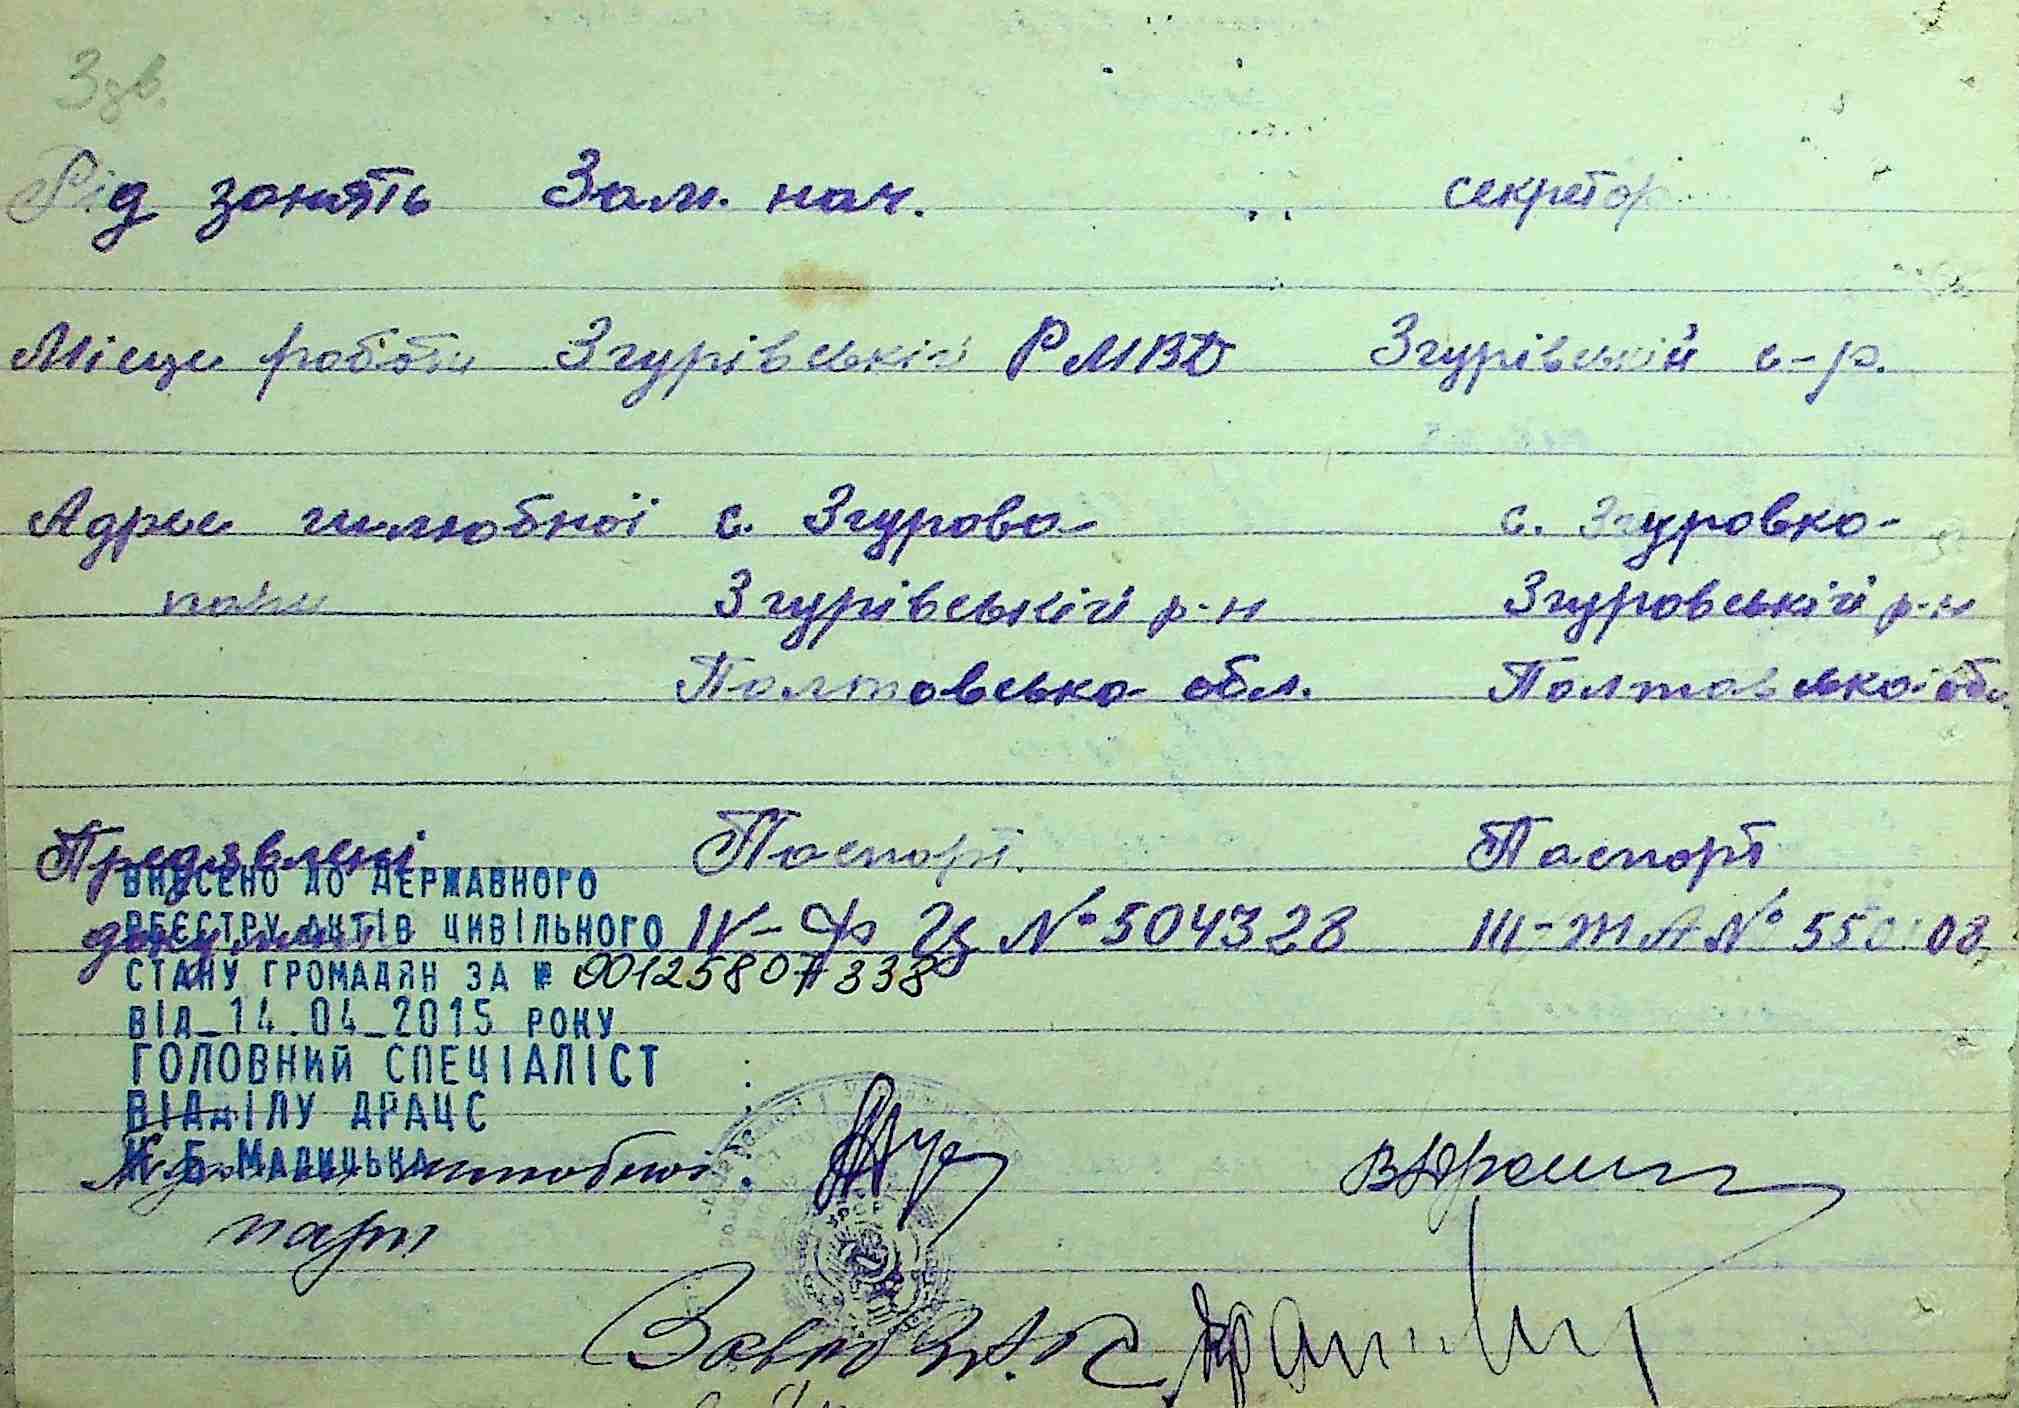 Здв.
Рід занять Зам. нач. секретар
Місце роботи Згурівській РМВД Згурівській с-р.
Адрес шлюбної с. Згурова с. Згуровка
пари Згурівській р-н Згуровській р-н
Полтовська обл. Полтовської обл.
Предявлені Паспорт. Паспорт
документи IV-ФЦ № 504328 III-ЖА №
ВНЕСЕНО ДО ДЕРЖАВНОГО
РЕЄСТРУ АКТІВ ЦИВІЛЬНОГО
СТАНУ ГРОМАДЯН ЗА № 00125807338
ВІД_14.04_2015 РОКУ
ГОЛОВНИЙ СПЕЦІАЛІСТ
ВІДДІЛУ ДРАЦС
шлюбної
пари